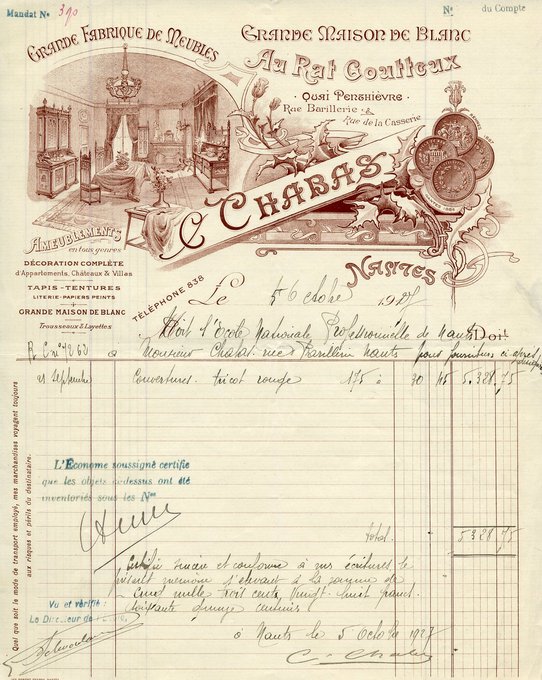 Mandat No 390
No du Compte
Grande Fabrique de Meubles
Grande Maison de Blanc
Au Rat Goutteux
Quai Penthièvre
Rue Barillerie &
Rue de la Casserie
C. Chabas
Nantes
Ameublements
en tous genres
Décoration Complète
d'Appartements, Châteaux & Villas
Tapis - Tentures
Literie - Papiers Peints
Grande Maison de Blanc
Trousseaux & Layettes
Téléphone 838
Le 5 Octobre 1927
Doit l'École Nationale Professionnelle de Nantes Doit
à Monsieur Chabas rue Barillerie Nantes pour fournitures ci-après
21 Septembre Couvertures tricot rouge 175 à 30 45 5.328,75
L'Économe soussigné certifie
que les objets ci-dessus ont été
inventoriés sous les Nos
total 5328 75
Certifié sincère et conforme à mes écritures le
présent mémoire s'élevant à la somme de
Cinq mille trois cents vingt huit francs
soixante quinze centimes
Vu et vérifié :
Le Directeur de l'École,
à Nantes le 5 Octobre 1927
C. Chabas
Quel que soit le mode de transport employé, mes marchandises voyagent toujours
aux risques et périls du destinataire.